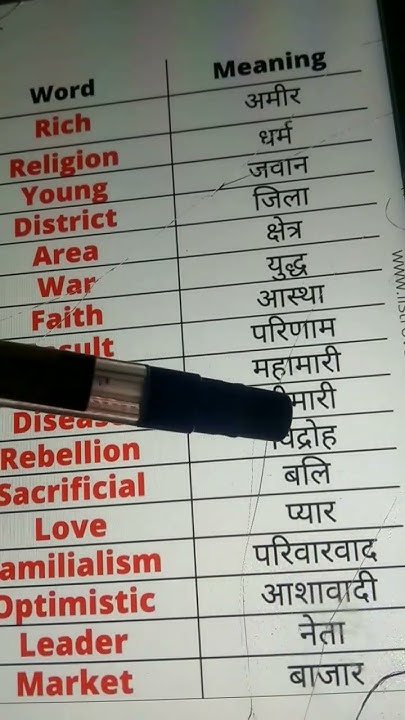 Word Meaning
Rich अमीर
Religion धर्म
Young जवान
District जिला
Area क्षेत्र
War युद्ध
Faith आस्था
परिणाम
महामारी
Rebellion विद्रोह
Sacrificial बलि
Love प्यार
amilialism परिवारवाद
Optimistic आशावादी
Leader नेता
Market बाजार